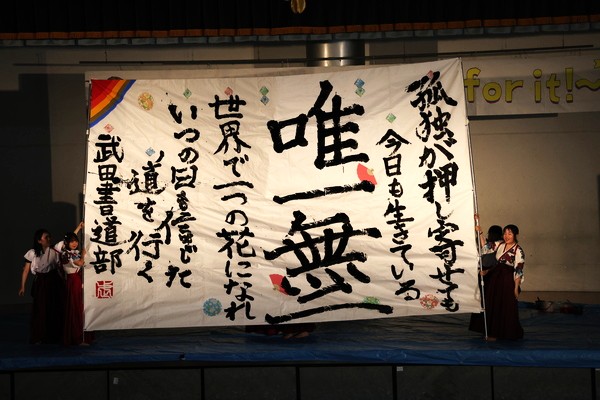 孤独が押し寄せても
今日も生きている
唯一無二
世界で一つの花になれ
いつの日も信じた
道を行く
武田書道部
for it!~